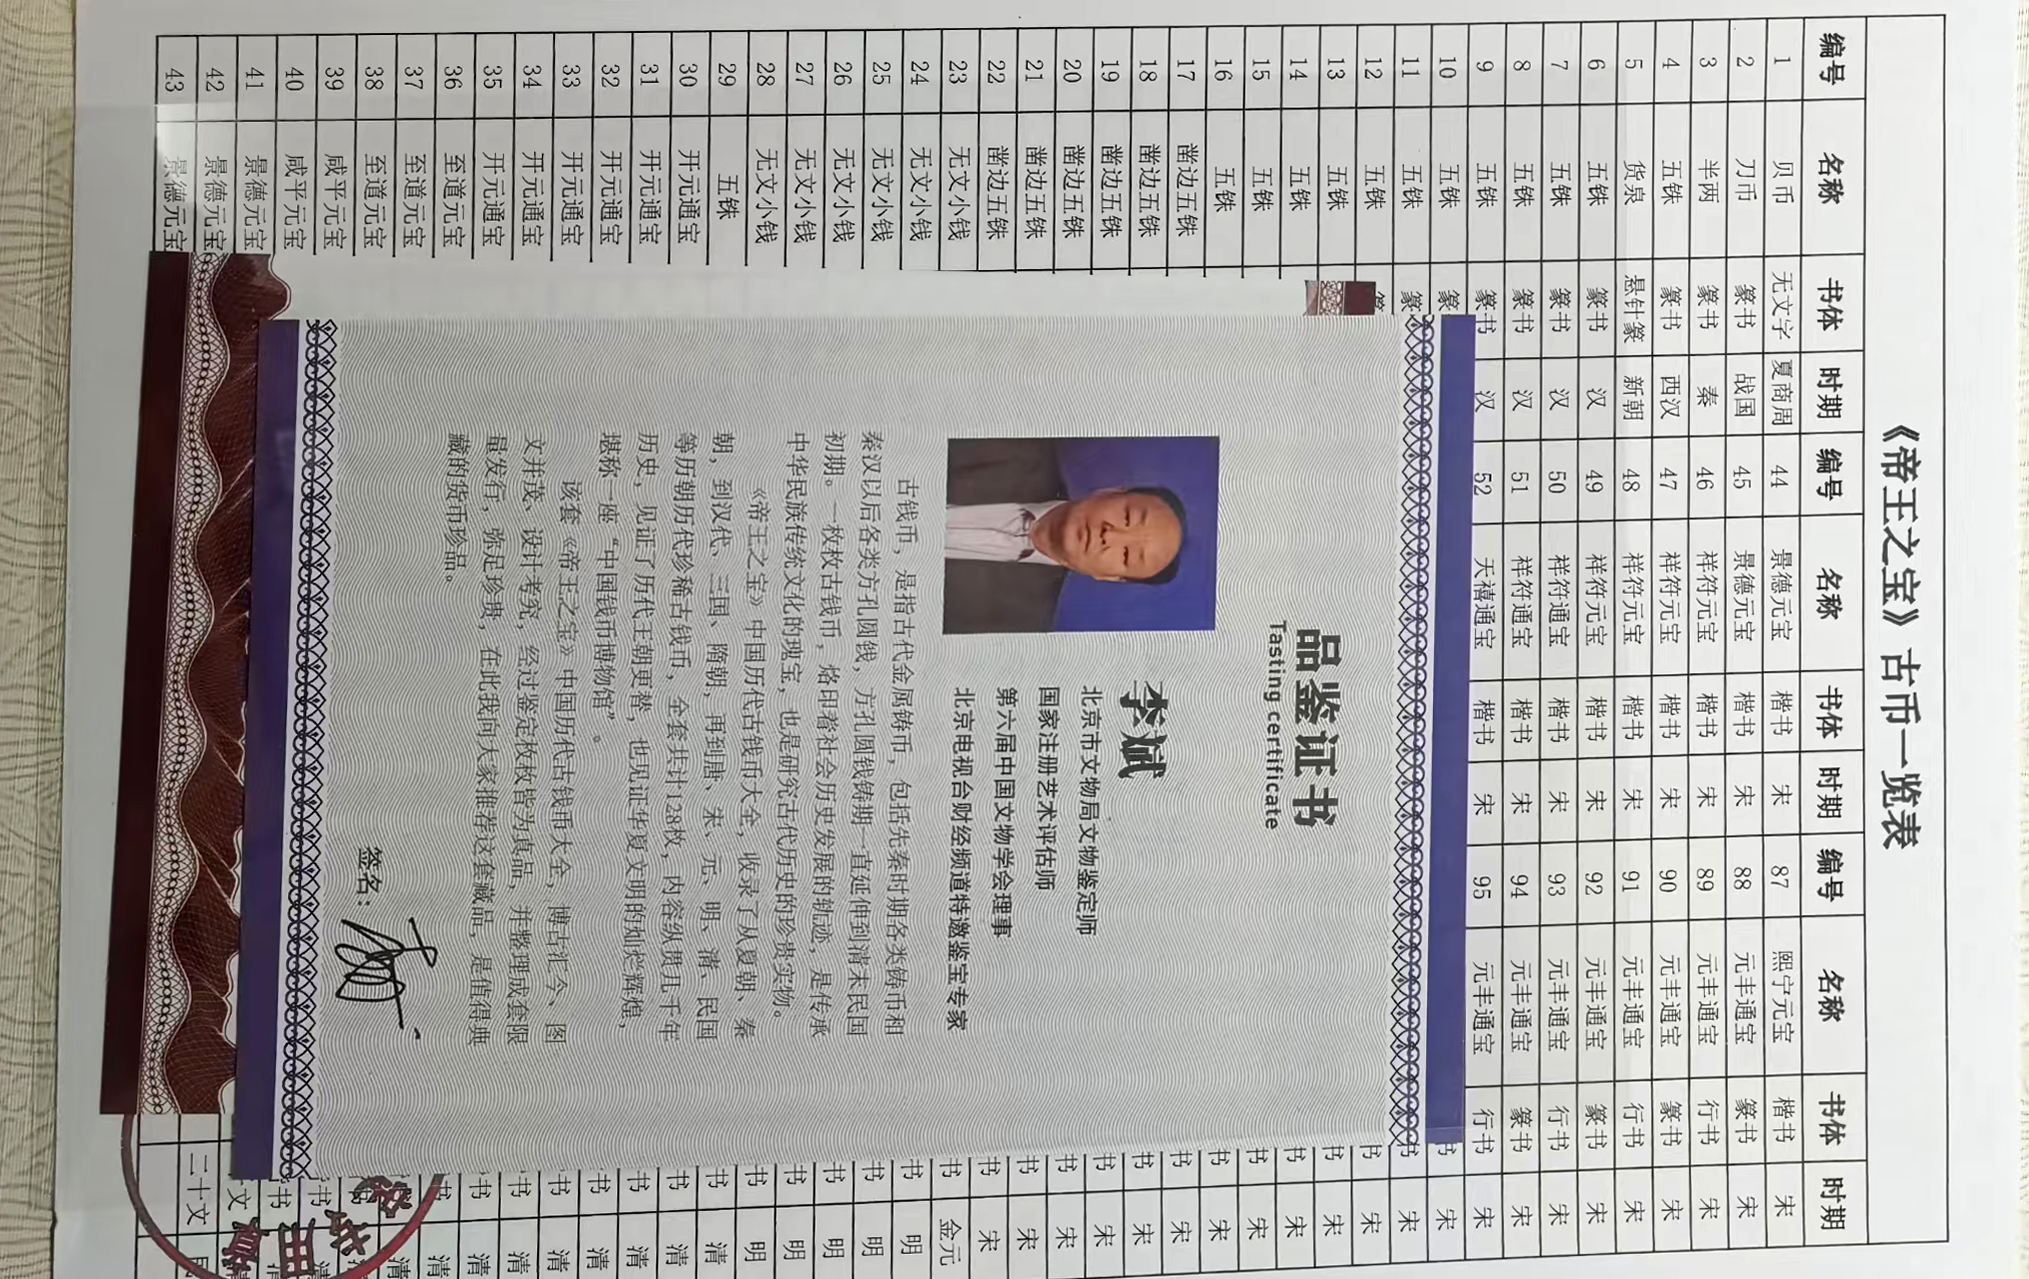 《帝王之宝》古币一览表
编号 名称 书体 时期 编号 名称 书体 时期 编号 名称 书体 时期
1 贝币 无文字 夏商周 44 景德元宝 楷书 宋 87 熙宁元宝 楷书 宋
2 刀币 篆书 战国 45 景德元宝 楷书 宋 88 元丰通宝 篆书 宋
3 半两 篆书 秦 46 祥符元宝 楷书 宋 89 元丰通宝 行书 宋
4 五铢 篆书 西汉 47 祥符元宝 楷书 宋 90 元丰通宝 篆书 宋
5 货泉 悬针篆 新朝 48 祥符元宝 楷书 宋 91 元丰通宝 行书 宋
6 五铢 篆书 汉 49 祥符元宝 楷书 宋 92 元丰通宝 篆书 宋
7 五铢 篆书 汉 50 祥符通宝 楷书 宋 93 元丰通宝 行书 宋
8 五铢 篆书 汉 51 祥符通宝 楷书 宋 94 元丰通宝 篆书 宋
9 五铢 篆书 汉 52 天禧通宝 楷书 宋 95 元丰通宝 行书 宋
10 五铢 篆 书 宋
11 五铢 篆 书 宋
12 五铢 篆 书 宋
13 五铢 书 宋
14 五铢 书 宋
15 五铢 书 宋
16 五铢 书 宋
17 凿边五铢 书 宋
18 凿边五铢 书 宋
19 凿边五铢 书 宋
20 凿边五铢 书 宋
21 凿边五铢 书 宋
22 凿边五铢 书 宋
23 无文小钱 书 金元
24 无文小钱 书 明
25 无文小钱 书 明
26 无文小钱 书 明
27 无文小钱 书 明
28 无文小钱 书 明
29 五铢 书 清
30 开元通宝 书 清
31 开元通宝 书 清
32 开元通宝 书 清
33 开元通宝 书 清
34 开元通宝 书 清
35 开元通宝 书 清
36 至道元宝 书 清
37 至道元宝 清
38 至道元宝
39 咸平元宝 书
40 咸平元宝 书
41 景德元宝 文
42 景德元宝 二十文
43 景德元宝
品鉴证书
Tasting certificate
李斌
北京市文物局文物鉴定师
国家注册艺术评估师
第六届中国文物学会理事
北京电视台财经频道特邀鉴宝专家
古钱币，是指古代金属铸币，包括先秦时期各类铸币和
秦汉以后各类方孔圆钱，方孔圆钱铸期一直延伸到清末民国
初期。一枚枚古钱币，烙印着社会历史发展的轨迹，是传承
中华民族传统文化的瑰宝，也是研究古代历史的珍贵实物。
《帝王之宝》中国历代古钱币大全，收录了从夏朝、秦
朝，到汉代、三国、隋朝，再到唐、宋、元、明、清、民国
等历朝历代珍稀古钱币，全套共计128枚，内容纵贯几千年
历史，见证了历代王朝更替，也见证华夏文明的灿烂辉煌，
堪称一座“中国钱币博物馆”。
该套《帝王之宝》中国历代古钱币大全，博古汇今、图
文并茂、设计考究，经过鉴定枚枚皆为真品，并整理成套限
量发行，弥足珍贵，在此我向大家推荐这套藏品，是值得典
藏的货币珍品。
签名：
专用章